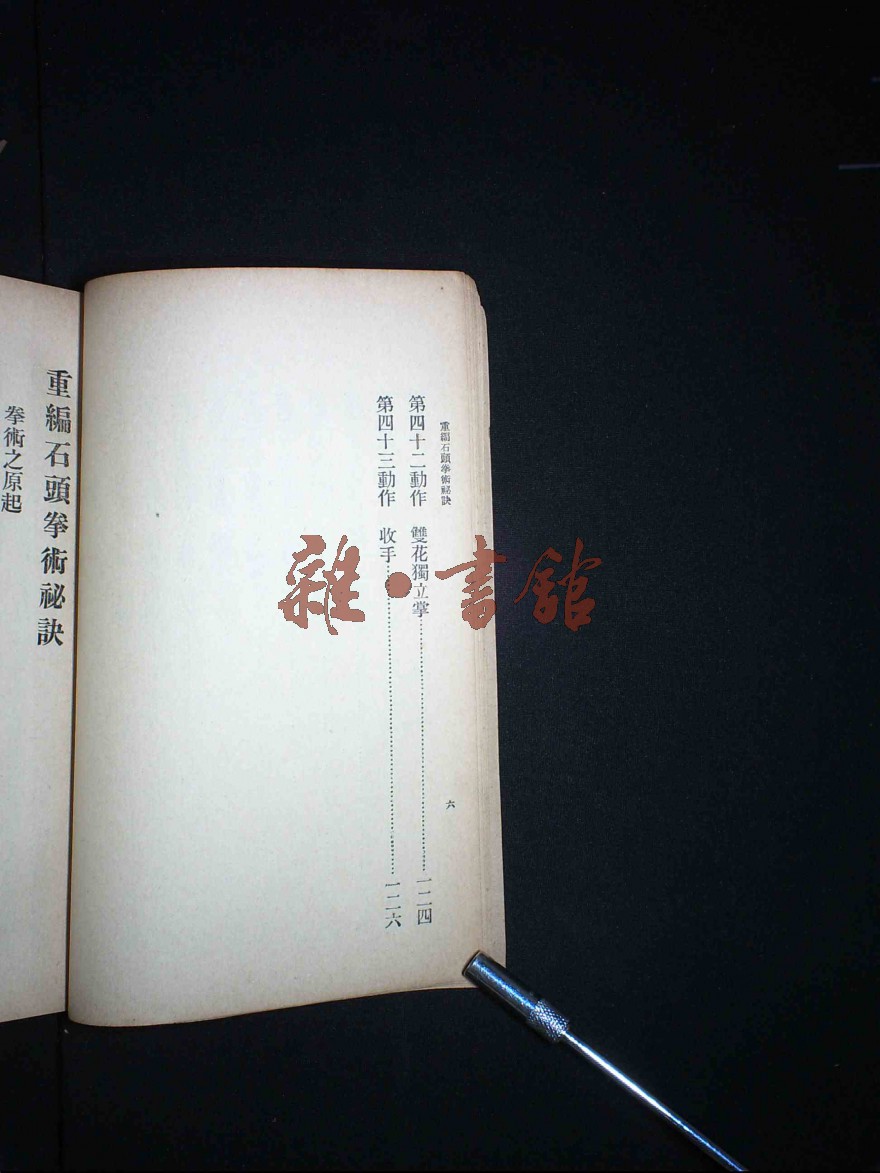 重編石頭拳術祕訣
第四十二動作　雙花獨立掌……一二四
第四十三動作　收手……一二六
六
重編石頭拳術祕訣
拳術之原起
雜·書館